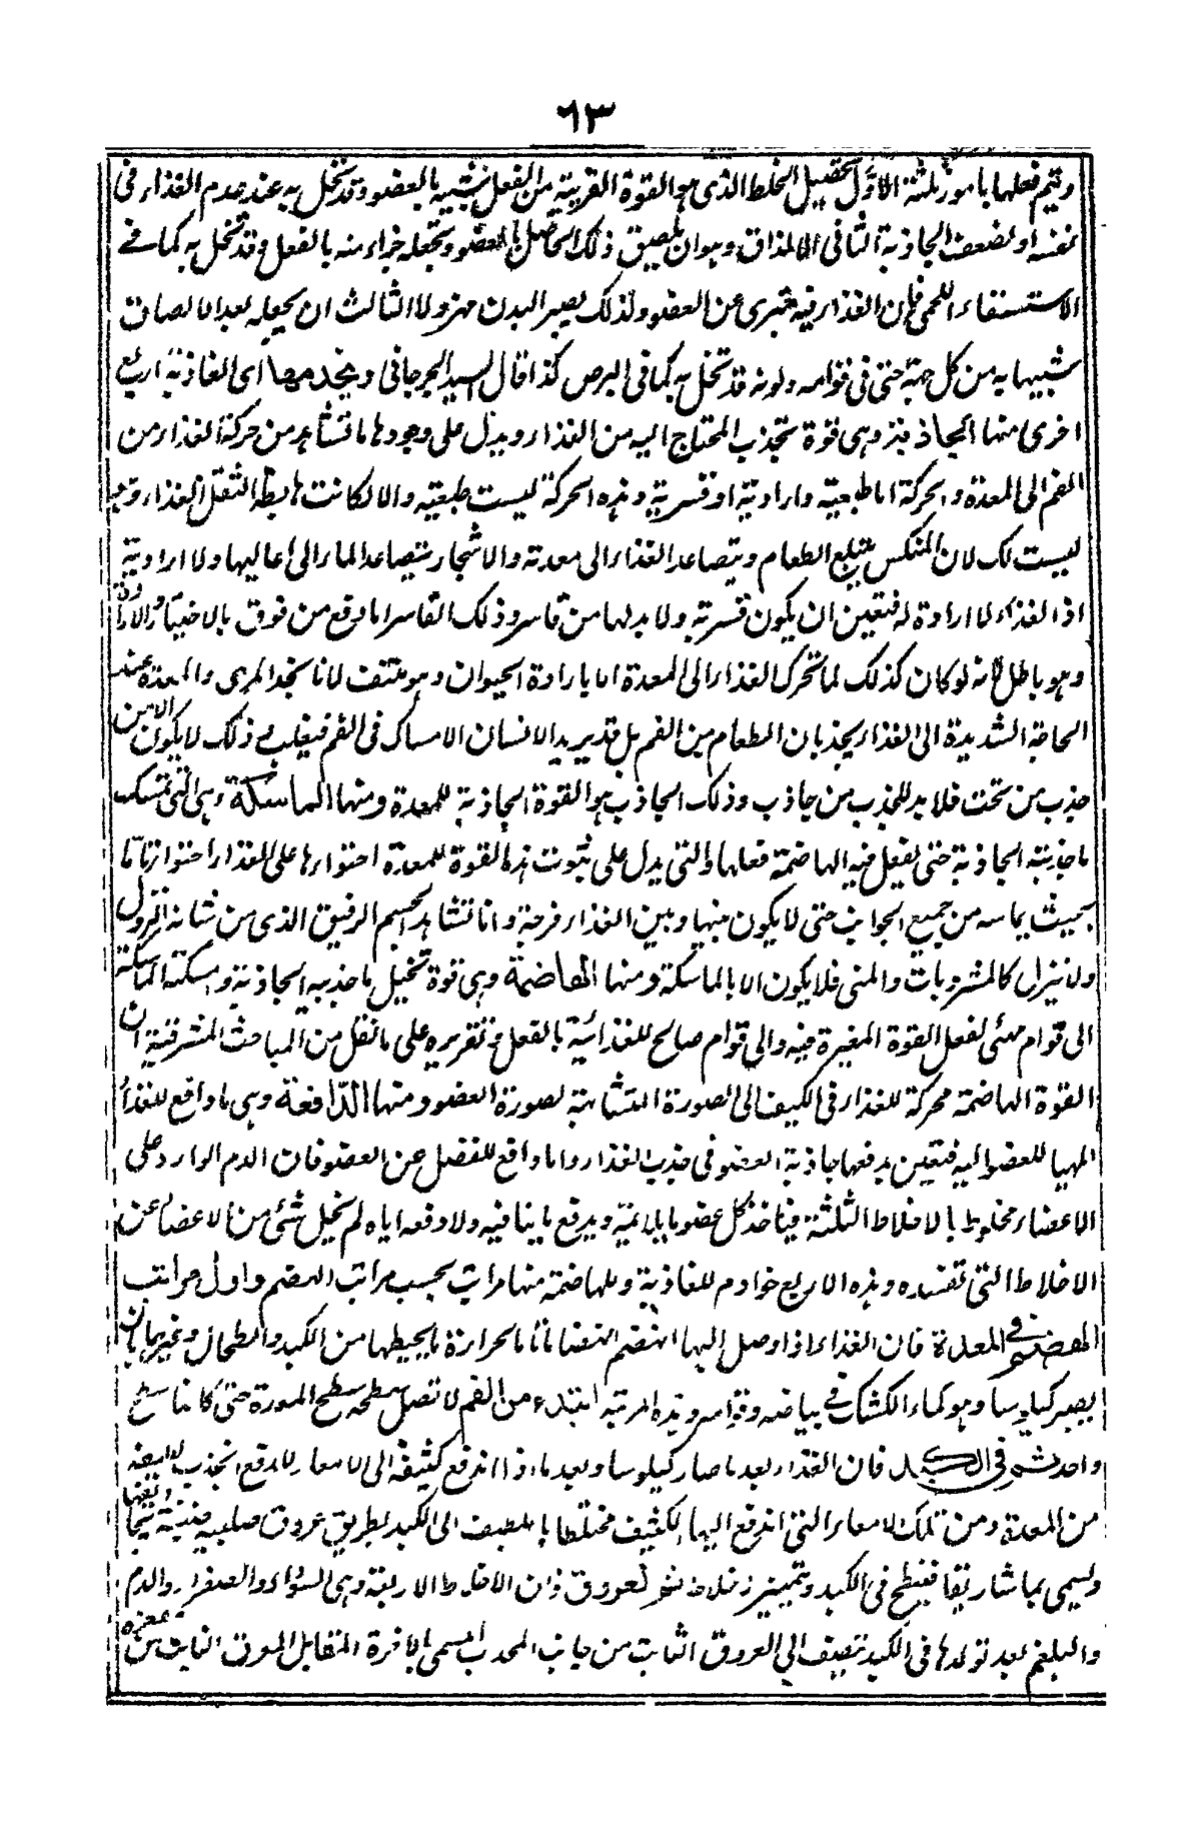 ٦٣
ويتم فعلها بامور ثلثة الاول تحصيل الخلط الذى هو القوة القريبة من الفعل شبيه بالعضو وقد تخل به عند عدم الغذاء فى
نفسه او لضعف الجاذبة الثانى الالزاق وهو ان يلصق ذلك الحاصل بالعضو ويجعله جزاء منه بالفعل وقد تخل به كما فے
الاستسقاء اللحمى فان الغذاء فيه متبرى عن العضو ولذلك يصير البدن مهزولا الثالث ان يجعله بعد الالصاق
شبيها به من كل جهة حتى فى قوامه ولونه قد تخل به كما فى البرص كذا قال السيد الجرجانى ويخدمها اى الغاذية اربع
اخرى منها الجاذبة وهى قوة تجذب المحتاج اليه من الغذاء ويدل على وجودها ما تشاهد من حركة الغذاء من
الفم الى المعدة والحركة اما طبعية وارادية او قسرية وهذه الحركة ليست طبعية والا لكانت هابطة لثقل الغذاء
ليست لك لان المنكس يبتلع الطعام ويتصاعد الغذاء الى معدته والاشجار يتصاعد الماء الى اعاليها ولا ارادية
اذ الغذاء لا ارادة له فتعين ان يكون قسرية ولا بد لها من قاسر وذلك القاسر اما دفع من فوق بالاختيار
وهو باطل لانه لو كان كذلك لما تحرك الغذاء الى المعدة الا بارادة الحيوان وهو منتف لانا نجد المرى والمعدة عند
الحاجة الشديدة الى الغذاء يجذبان الطعام من الفم بل قد يريد الانسان الامساك فى الفم فيغلب وذلك لا يكون الا من
جذب من تحت فلا بد للجذب من جاذب وذلك الجاذب هو القوة الجاذبة للمعدة ومنها الماسكة وهى التى تمسك
ما جذبته الجاذبة حتى يفعل فيه الهاضمة فعلها والتى يدل على ثبوت هذه القوة للمعدة احتواءها على الغذاء احتواء تاما
بحيث يماسه من جميع الجوانب حتى لا يكون بينها وبين الغذاء فرجة وانا نشاهد الجسم الرقيق الذى من شانه النزول
ولا ينزل كالمشروبات والمنى فلا يكون الا بالماسكة ومنها الهاضمة وهى قوة تحيل ما جذبه الجاذبة وامسكته الماسكة
الى قوام مهئى لفعل القوة المغيرة فيه والى قوام صالح للغذائية بالفعل وتقريره على ما نقل من المباحث المشرقية ان
القوة الهاضمة محركة للغذاء فى الكيف الى الصورة المتشابهة لصورة العضو ومنها الدافعة وهى ما دافع للغذاء
المهيا للعضو اليه فتعين بدفعها جاذبة العضو فى جذب الغذاء واما دافع للفضل عن العضو فان الدم الوارد على
الاعضاء مخلوط بالاخلاط الثلثة فياخذ كل عضو ما يلائمه ويدفع ما ينافيه ولا دفعه اياه لم يخل شئى من الاعضاء عن
الاخلاط التى تفسده وهذه الاربع خوادم للغاذية وللهاضمة منها مراتب بحسب مراتب الهضم واول مراتب
الهضم فى المعدة فان الغذاء اذا وصل اليها انهضم انهضاما تاما بحرارة ما يحيطها من الكبد والطحال وغيرهما بان
يصير كيلوسا وهو كماء الكشك فى بياضه وقوامه وهذه المرتبة ابتداء من الفم لاتصال سطحه سطح المعدة حتى كانا سطح
واحد ثم فى الكبد فان الغذاء بعد ما صار كيلوسا وبعد ما اندفع كثيفه الى الامعاء للدفع انجذب لطيفه
من المعدة ومن تلك الامعاء التى اندفع اليها الكثيف مختلطا باللطيف الى الكبد بطريق عروق صلبية
وليسمى بماساريقا فينطبخ فى الكبد ويتميز الاخلاط الاربعة وهى السوداء والصفراء والدم
والبلغم بعد تولدها فى الكبد تنصب الى العروق النابت من جانب المحدب المسمى المقابل